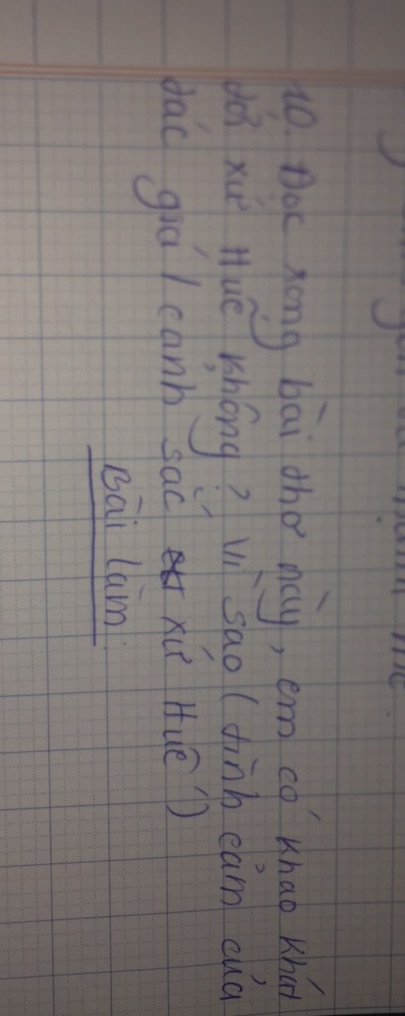 10. Đọc xong bài thơ này, em có khao khát
đới xứ Huế không? Vì sao (tình cảm của
tác giả / cảnh sắc xứ Huế)
Bài làm: